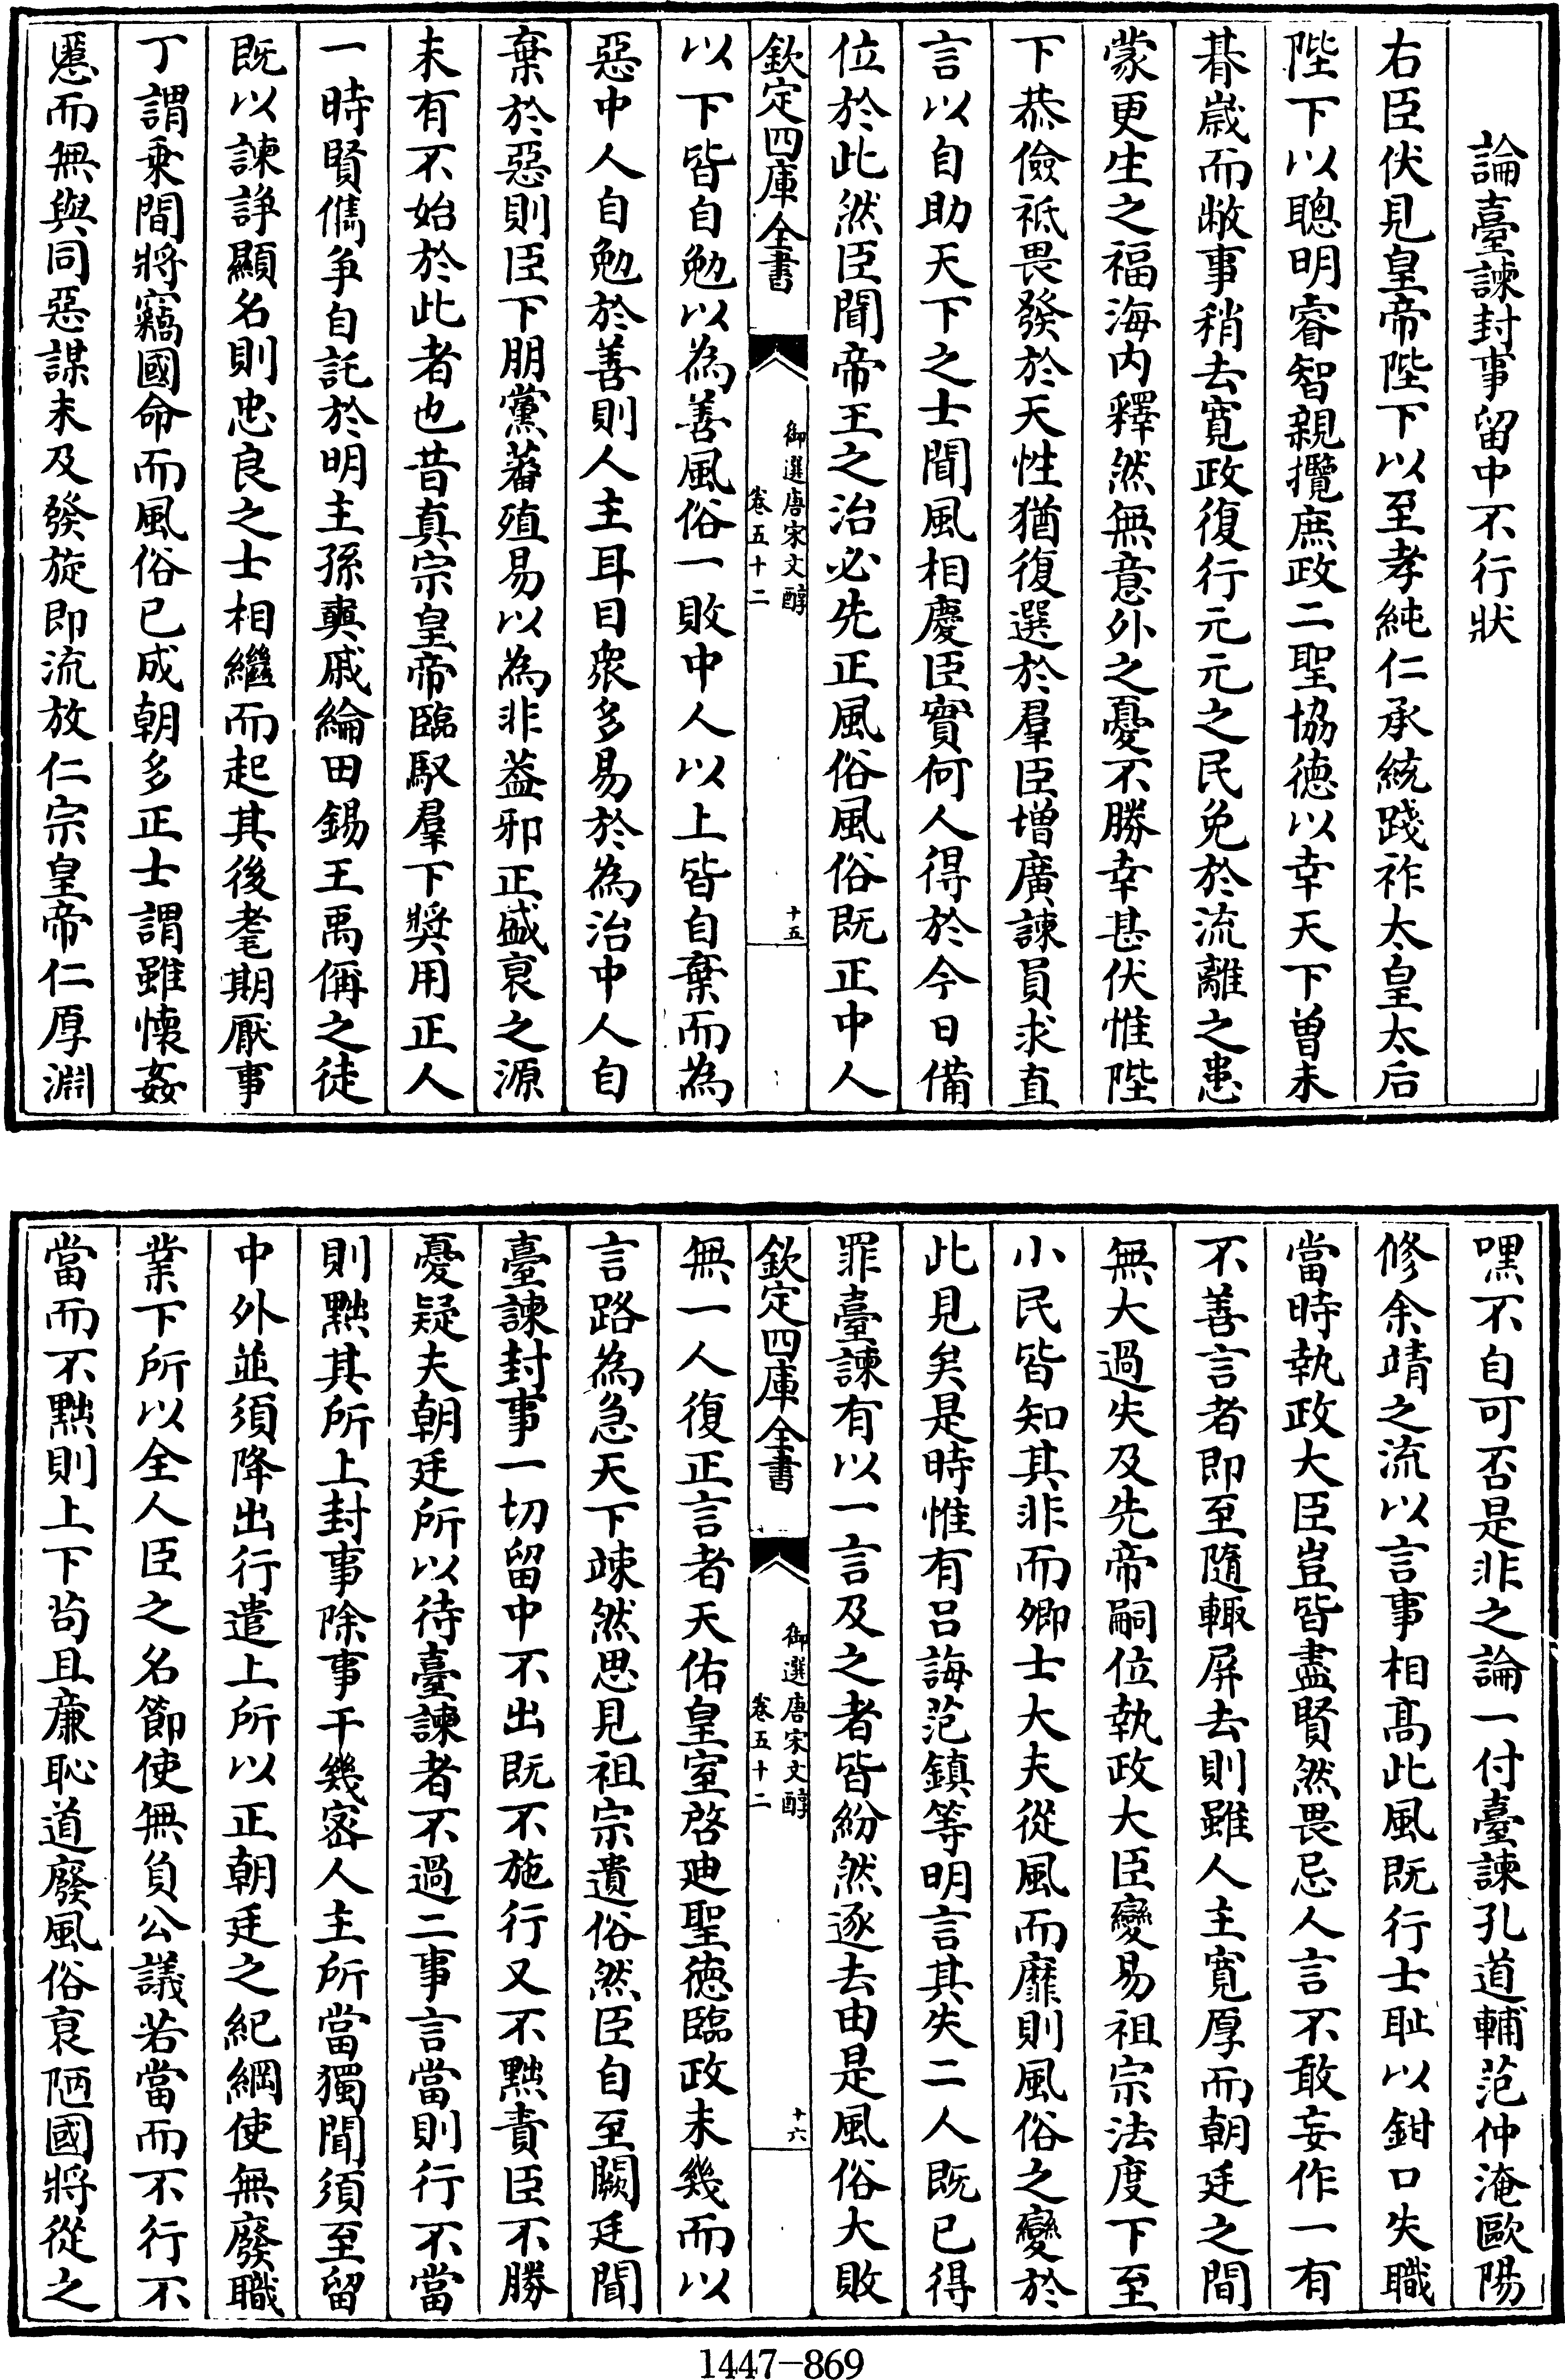 論臺諫封事留中不行狀
右臣伏見皇帝陛下以至孝純仁承統踐祚太皇太后
陛下以聰明睿智親攬庶政二聖協徳以幸天下曽未
朞歳而敝事稍去寛政復行元元之民免於流離之患
蒙更生之福海内釋然無意外之憂不勝幸甚伏惟陛
下恭儉祗畏發於天性猶復選於羣臣増廣諫員求直
言以自助天下之士聞風相慶臣實何人得於今日備
位於此然臣聞帝王之治必先正風俗風俗既正中人
欽定四庫全書
御選唐宋文醇
卷五十二
十五
以下皆自勉以為善風俗一敗中人以上皆自棄而為
惡中人自勉於善則人主耳目衆多易於為治中人自
棄於惡則臣下朋黨蕃殖易以為非葢邪正盛衰之源
未有不始於此者也昔真宗皇帝臨馭羣下奬用正人
一時賢儁爭自託於明主孫奭戚綸田錫王禹偁之徒
既以諫諍顯名則忠良之士相繼而起其後耄期厭事
丁謂乘間將竊國命而風俗已成朝多正士謂雖懐姦
慝而無與同惡謀未及發旋即流放仁宗皇帝仁厚淵
嘿不自可否是非之論一付臺諫孔道輔范仲淹歐陽
修余靖之流以言事相髙此風既行士耻以鉗口失職
當時執政大臣豈皆盡賢然畏忌人言不敢妄作一有
不善言者即至隨輒屏去則雖人主寛厚而朝廷之間
無大過失及先帝嗣位執政大臣變易祖宗法度下至
小民皆知其非而卿士大夫從風而靡則風俗之變於
此見矣是時惟有呂誨范鎮等明言其失二人既已得
罪臺諫有以一言及之者皆紛然逐去由是風俗大敗
欽定四庫全書
御選唐宋文醇
卷五十二
十六
無一人復正言者天佑皇室啓廸聖徳臨政未幾而以
言路為急天下竦然思見祖宗遺俗然臣自至闕廷聞
臺諫封事一切留中不出既不施行又不黜責臣不勝
憂疑夫朝廷所以待臺諫者不過二事言當則行不當
則黜其所上封事除事干幾宻人主所當獨聞須至留
中外並須降出行遣上所以正朝廷之紀綱使無廢職
業下所以全人臣之名節使無負公議若當而不行不
當而不黜則上下茍且亷恥道廢風俗衰陋國將從之
1447-869